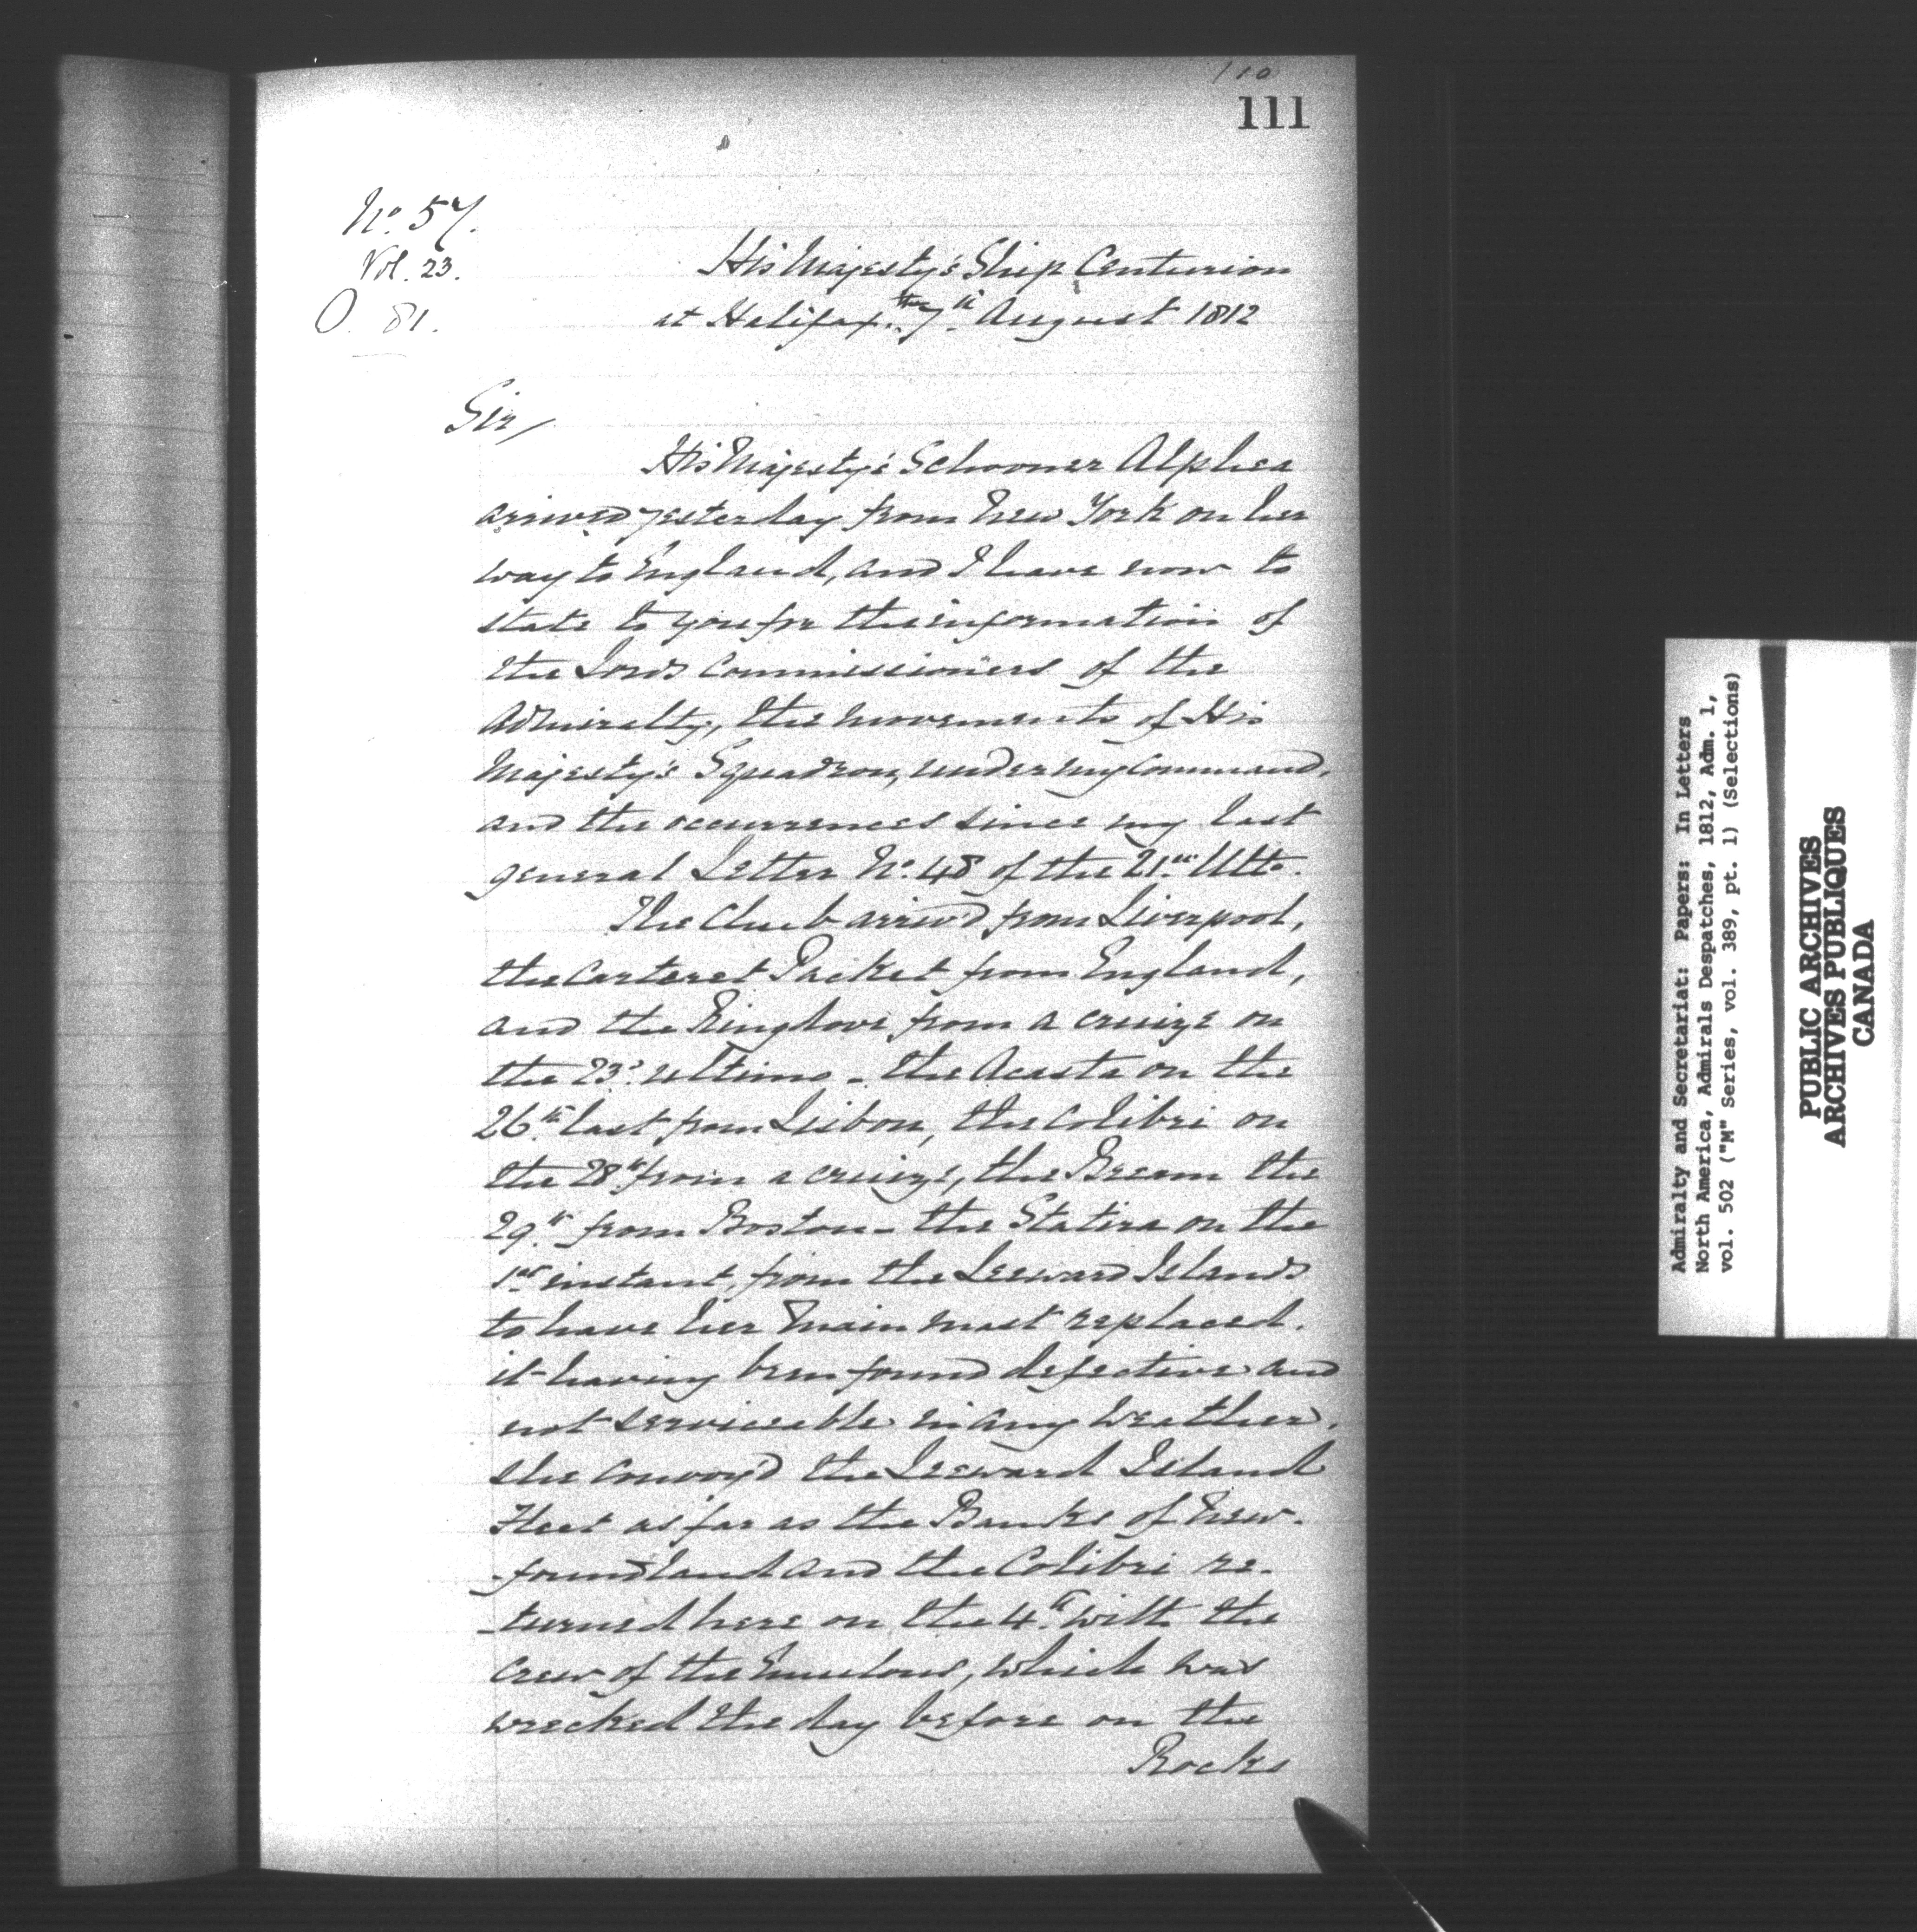 110
111
No. 57.
Vol. 23.
O. 81.
His Majesty's Ship Centurion
at Halifax the 7th August 1812
Sir,
His Majesty's Schooner Alphea
arrived yesterday from New York on her
way to England, and I have now to
state to you for the information of
the Lords Commissioners of the
Admiralty, the movements of His
Majesty's Squadron, under my Command,
and the occurrences since my last
general Letter No. 48 of the 21st Ulto.
The Chub arriv'd from Liverpool,
the Carteret Packet from England,
and the Ringdove from a cruize on
the 23d. ultimo - the Acasta on the
26th last from Lisbon, the Colibri on
the 28th from a cruize, the Bream the
29th from Boston - the Statira on the
1st instant, from the Leeward Islands
to have her Main mast replaced.
it having been found defective and
not serviceable in any Weather.
she convoy'd the Leeward Island
Fleet as far as the Banks of New-
-foundland and the Colibri re-
-turned here on the 4th with the
crew of the Emulous, which was
wrecked the day before on the
Rocks
Admiralty and Secretariat: Papers: In Letters
North America, Admirals Despatches, 1812, Adm. 1,
vol. 502 ("M" Series, vol. 389, pt. 1) (Selections)
PUBLIC ARCHIVES
ARCHIVES PUBLIQUES
CANADA